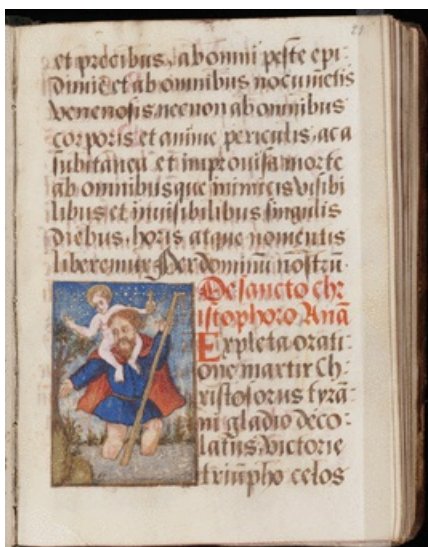 21
et precibus, ab omni peste epi
dimie et ab omnibus nocumētis
venenosis, necnon ab omnibus
corporis et anime periculis, ac a
subitanea et improuisa morte
ab omnibusque inimicis visibi
libus et inuisibilibus singulis
diebus, horis atque momentis
liberemur Per dominū nostrū.
De sancto chr
istophoro. Anā
Expleta orati
one martir Ch
ristoforus tyrā
ni gladio deco
latus, victorie
triūpho celos